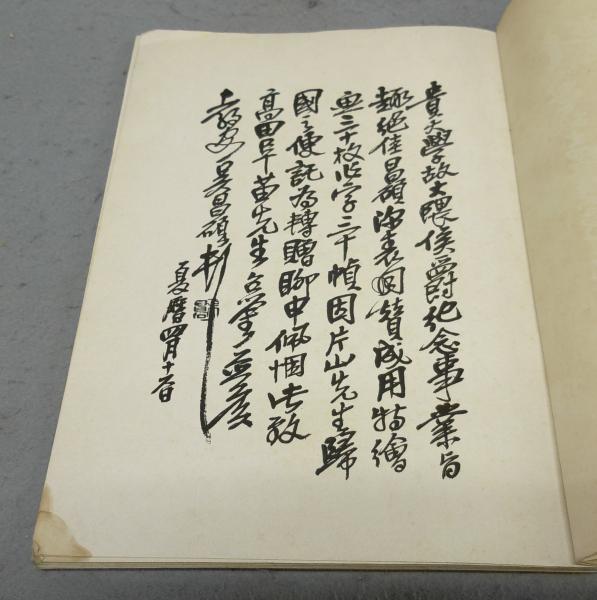 貴大學故大隈侯爵紀念事業旨
趣絕佳昌碩深表回贊成用特繪
画三十枚作字二十幀因片山先生歸
國之便託為轉贈聊申佩悃此致
高田早苗先生
吳昌碩
夏曆四月十六日